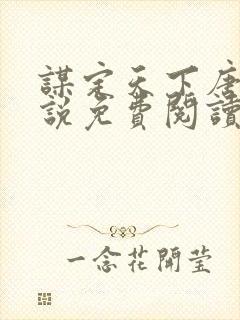 謀定天下唐
說免費閱讀
一念花開莹